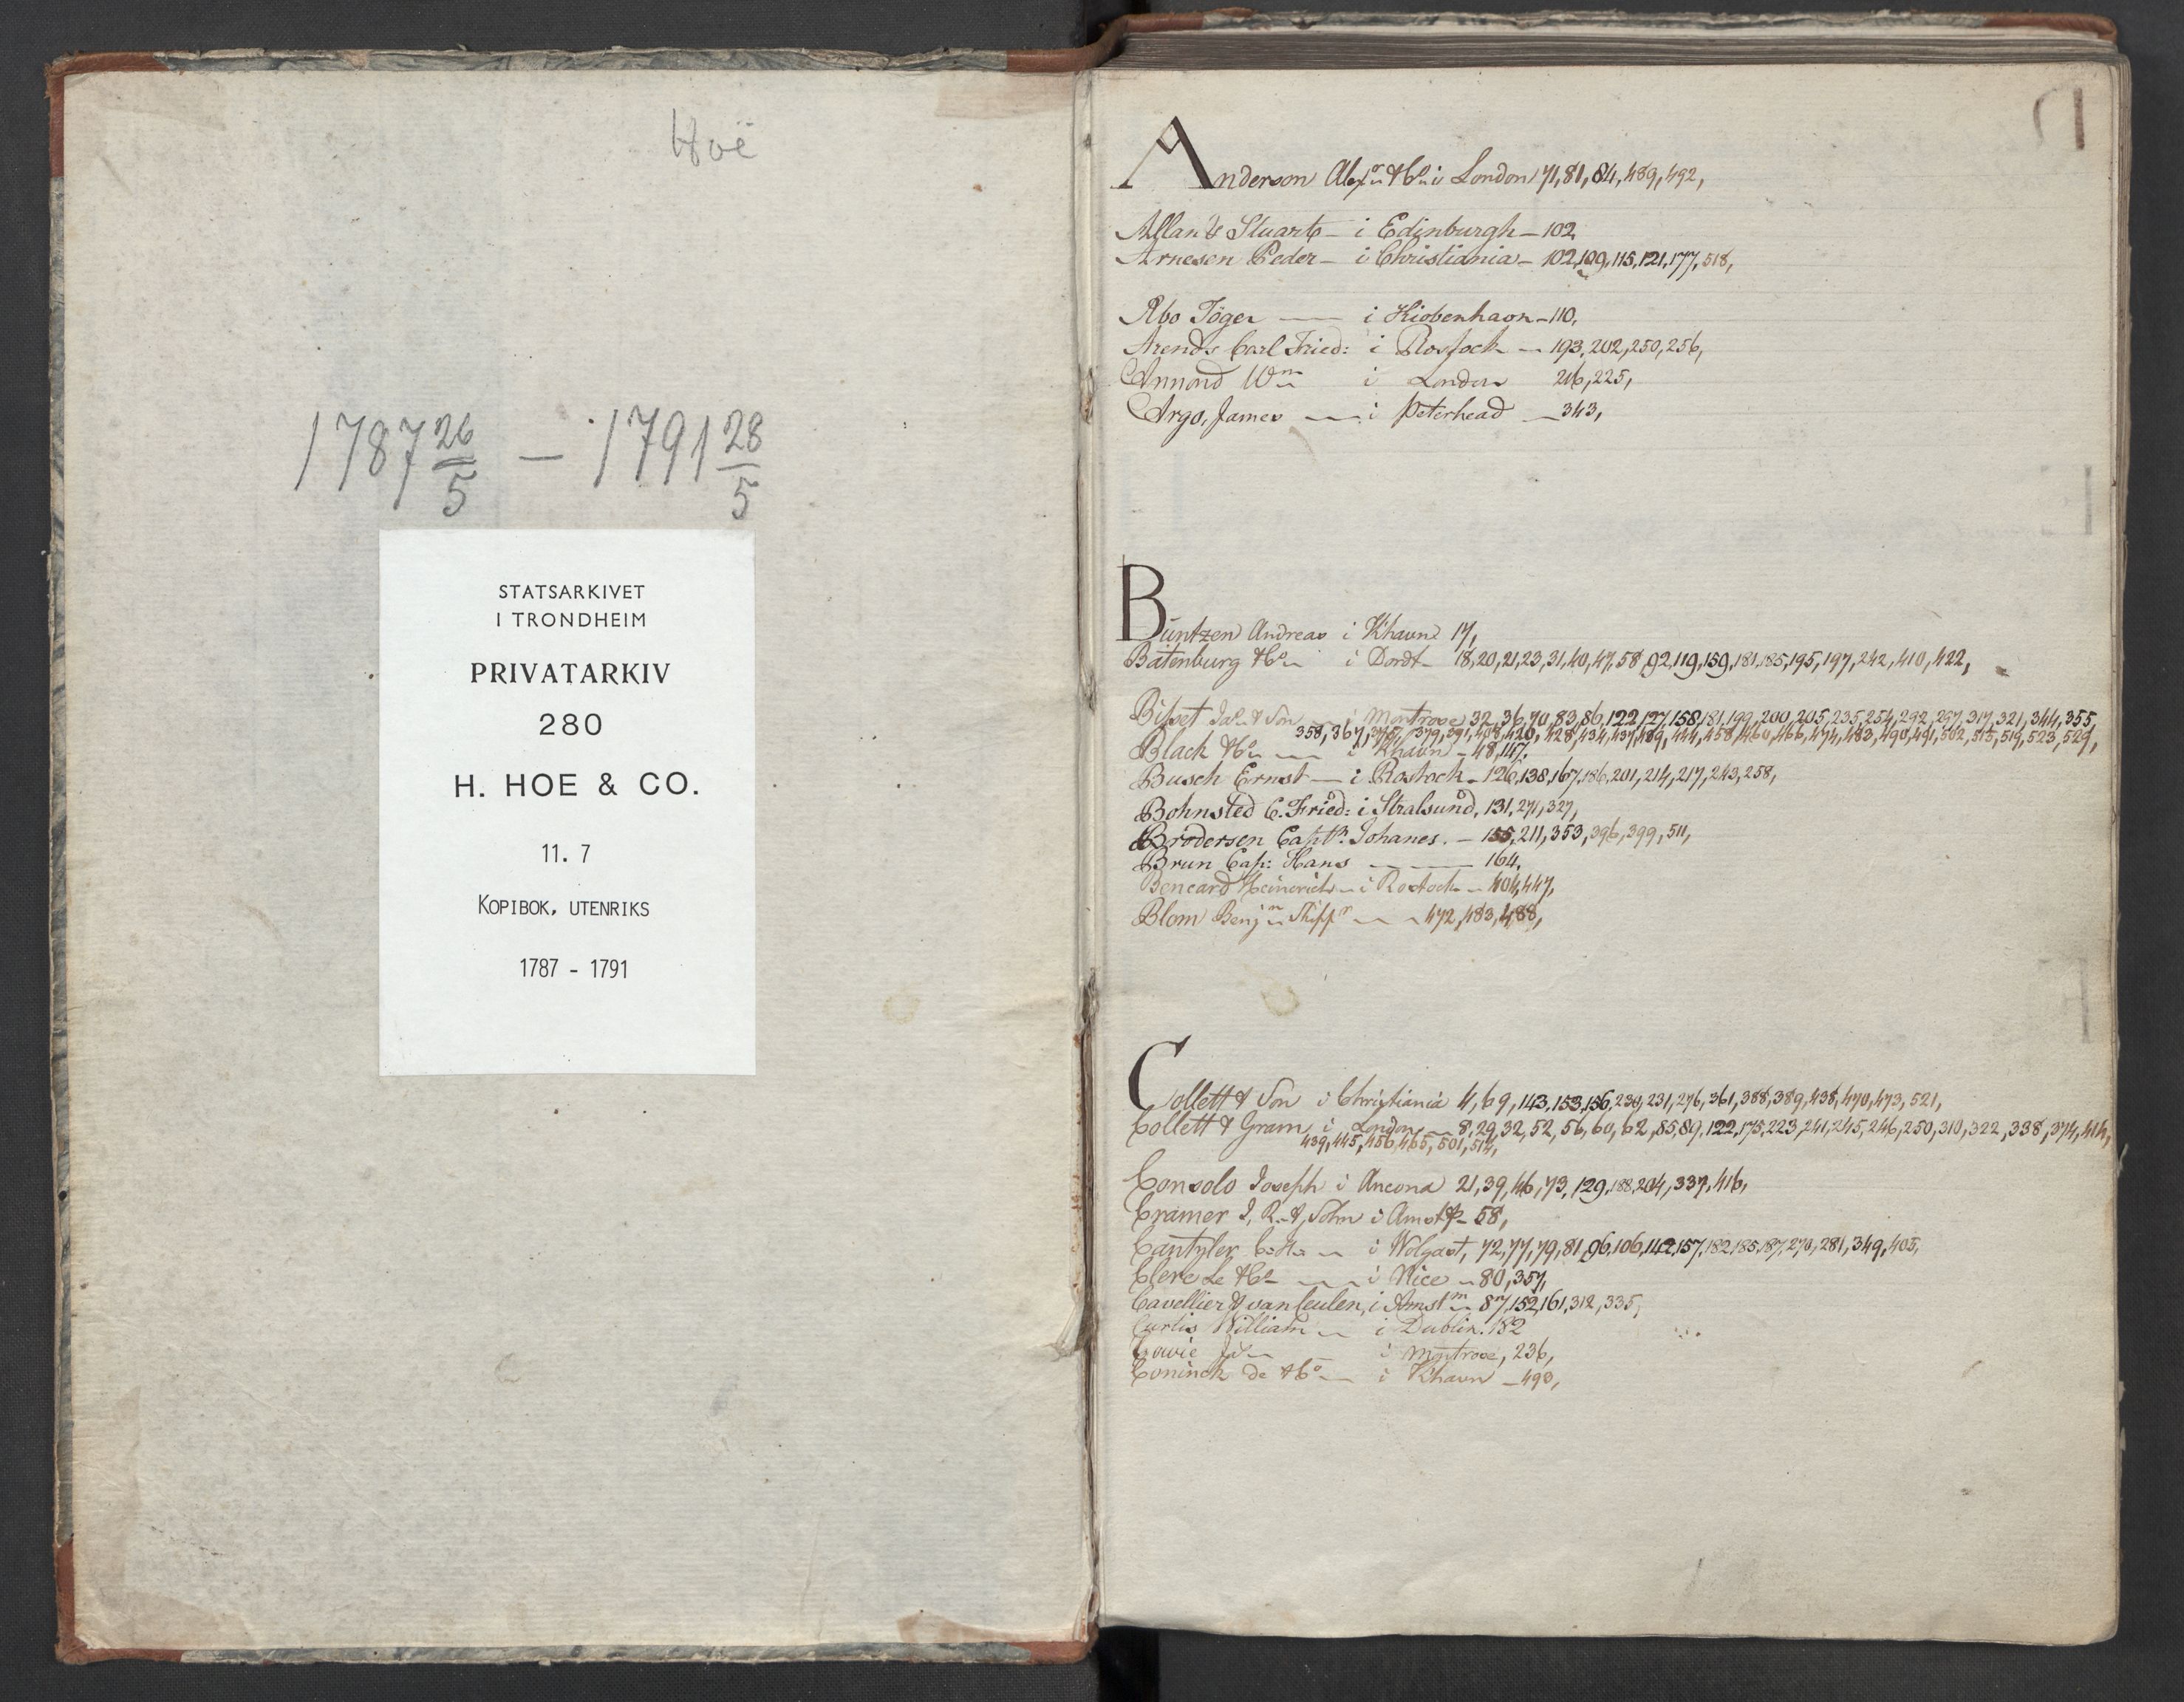 Hoë
1787 26/5 — 1791 28/5
STATSARKIVET
I TRONDHEIM
PRIVATARKIV
280
H. HOE & CO.
11. 7
KOPIBOK, UTENRIKS
1787 - 1791
Anderson Alexr & Co i London 71, 81, 84, 489, 492,
Allan & Stuart — i Edinburgh — 102
Arnesen Peder — i Christiania — 102, 109, 115, 121, 177, 518,
Abo Töger — i Kiobenhavn — 110,
Arends Carl Fried: i Rostock — 193, 202, 250, 256,
Annond Wm i London 216, 225,
Argo, James — i Peterhead — 343,
Buntzen Andreas i Khavn 17,
Batenburg & Co i Dordt — 18, 20, 21, 23, 31, 40, 47, 58, 92, 119, 159, 181, 185, 195, 197, 242, 410, 422,
Bisset Jas & Son — i Montrose 32, 36, 70, 83, 86, 122, 127, 158, 181, 199, 200, 205, 235, 254, 292, 297, 317, 321, 344, 355,
358, 367, 379, 391, 408, 420, 428, 434, 437, 439, 444, 458, 460, 466, 474, 483, 490, 491, 502, 515, 519, 523, 529,
Black & Co — i Khavn — 48, 147,
Busch Ernst — i Rostock — 126, 138, 167, 186, 201, 214, 217, 243, 258,
Bohnsted C. Fried: i Stralsund, 131, 271, 327,
Brodersen Captn. Johanes. — 155, 211, 353, 396, 399, 511,
Brun Cap: Hans — 164,
Bencard Heinrich — i Rostock — 404, 447,
Blom Benjm Skippr — 472, 483, 488,
Collett & Son i Christiania 4, 69, 143, 153, 156, 230, 231, 276, 361, 388, 389, 438, 470, 473, 521,
Collett & Gram i London — 8, 29, 32, 52, 56, 60, 62, 85, 89, 122, 175, 223, 241, 245, 246, 250, 310, 322, 338, 374, 414,
439, 445, 456, 465, 501, 514,
Consolo Joseph i Ancona 21, 39, 46, 73, 129, 188, 204, 337, 416,
Cramer J, R. & Sohn i Amst — 58,
Cantzler C. H. — i Wolgast, 72, 77, 79, 81, 96, 106, 142, 157, 182, 185, 187, 270, 281, 349, 405,
Clerc Le & Co — i Nice — 80, 357,
Cavellier & van Ceulen, i Amstm — 87, 152, 161, 312, 335,
Curtis William — i Dublin. 182
Cowie Jas i Montrose, 236,
Coninck de & Co — i Khavn — 490,